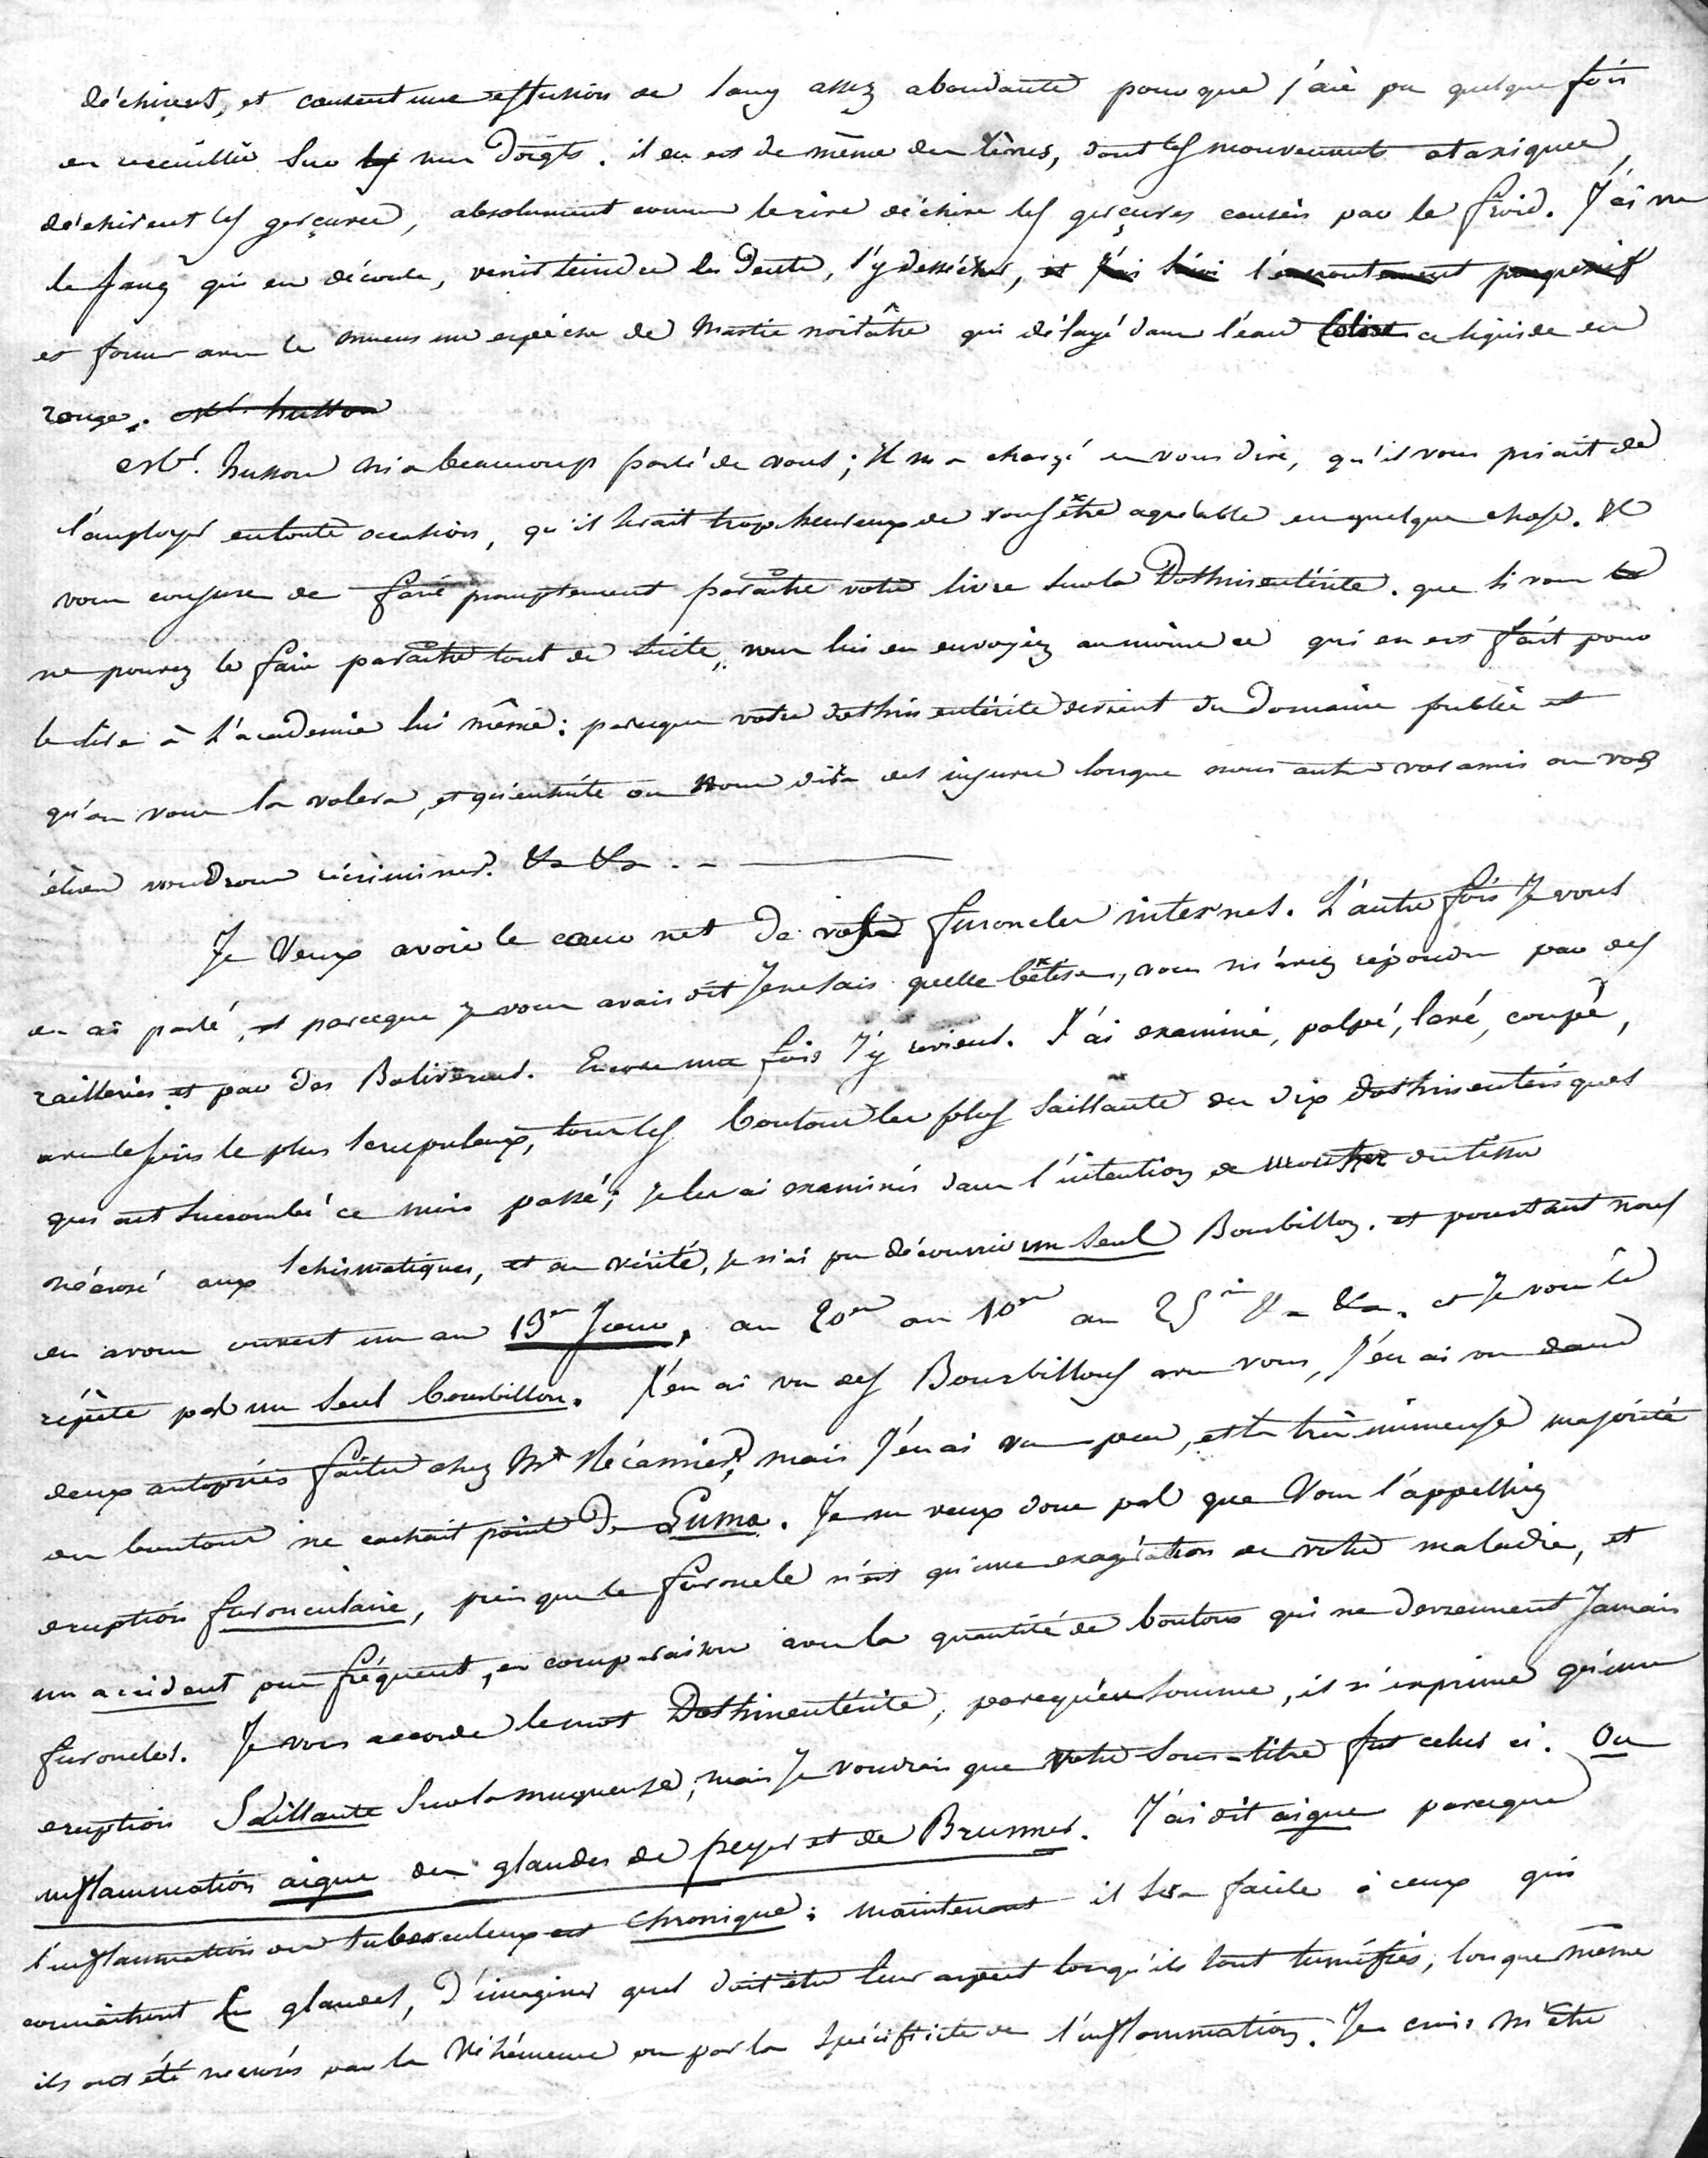 déchirent, et causent une effusion de sang assez abondante pour que j'aie pu quelque fois
en recueillir sur mes doigts. il en est de même des lèvres, dont les mouvements ataxiques,
déchirent les gerçures, absolument comme le rire déchire les gerçures causées par le froid. J'ai vu
le sang qui en découle, venir teindre les dents, s'y dessécher, et j'ai suivi l'encroutement progressif
et former avec le mucus une espèce de mastic noirâtre qui délayé dans l'eau colore ce liquide en
rouge. Mr. husson
Mr. husson m'a beaucoup parlé de vous; Il m'a chargé de vous dire, qu'il vous priait de
l'employer en toute occasion, qu'il serait trop heureux de vous être agréable en quelque chose. Il
vous conjure de faire promptement paraître votre livre sur la Dothinentérite. que si vous
ne pouvez le faire paraître tout de suite, vous lui en envoyiez au moins ce qui en est fait pour
le lire à l'academie lui même: parceque votre dothinentérite devient du domaine public et
qu'on vous la volera, et qu'ensuite on vous dira des injures lorsque nous autres vos amis ou vos
élèves voudrons récriminer. &a &a . -
Je Veux avoir le cœur net de vos furoncles internes. L'autre fois Je vous
en ai parlé, et parceque je vous avais dit Je ne sais quelle bêtise, vous m'avez répondu par des
railleries et par des Balivernes. Encore une fois J'y reviens. J'ai examiné, palpé, lavé, coupé,
avec le soin le plus scrupuleux, tous les boutons les plus saillants des dix dothinentériques
qui ont succombé ce mois passé; je les ai examinés dans l'intention de montrer du tissu
nécrosé aux schismatiques, et en vérité, je n'ai pu découvrir un seul Bourbillon. et pourtant nous
en avons ouvert un au 13me Jour, au 20me au 10me au 25me &a &a. et Je vous le
répète pas un seul bourbillon. J'en ai vu des Bourbillons avec vous, J'en ai vu dans
deux autopsies faites chez Mr Récamier, mais J'en ai vu peu, et la très immense majorité
des boutons ne cachait point de Exma. Je ne veux donc pas que Vous l'appelliez
eruption furonculaire, puisque le furoncle n'est qu'une exagération de votre maladie, et
un accident peu fréquent, en comparaison avec la quantité de boutons qui ne deviennent Jamais
furoncles. Je vous accorde le mot Dothinentérite, parcequ'en somme, il n'exprime qu'une
eruption Saillante sur la muqueuse; mais Je voudrais que votre sous-titre fut celui ci. Ou
inflammation aigue des glandes de peyer et de Brunner. J'ai dit aigue parceque
l'inflammation des tuberculeux est chronique; maintenant il sera facile à ceux qui
connaîtront les glandes, d'imaginer quel doit être leur aspect lorsqu'ils sont tuméfiés, lorsque même
ils ont été nécrosés par la véhémence ou par la spécificité de l'inflammation. Je crois m'être